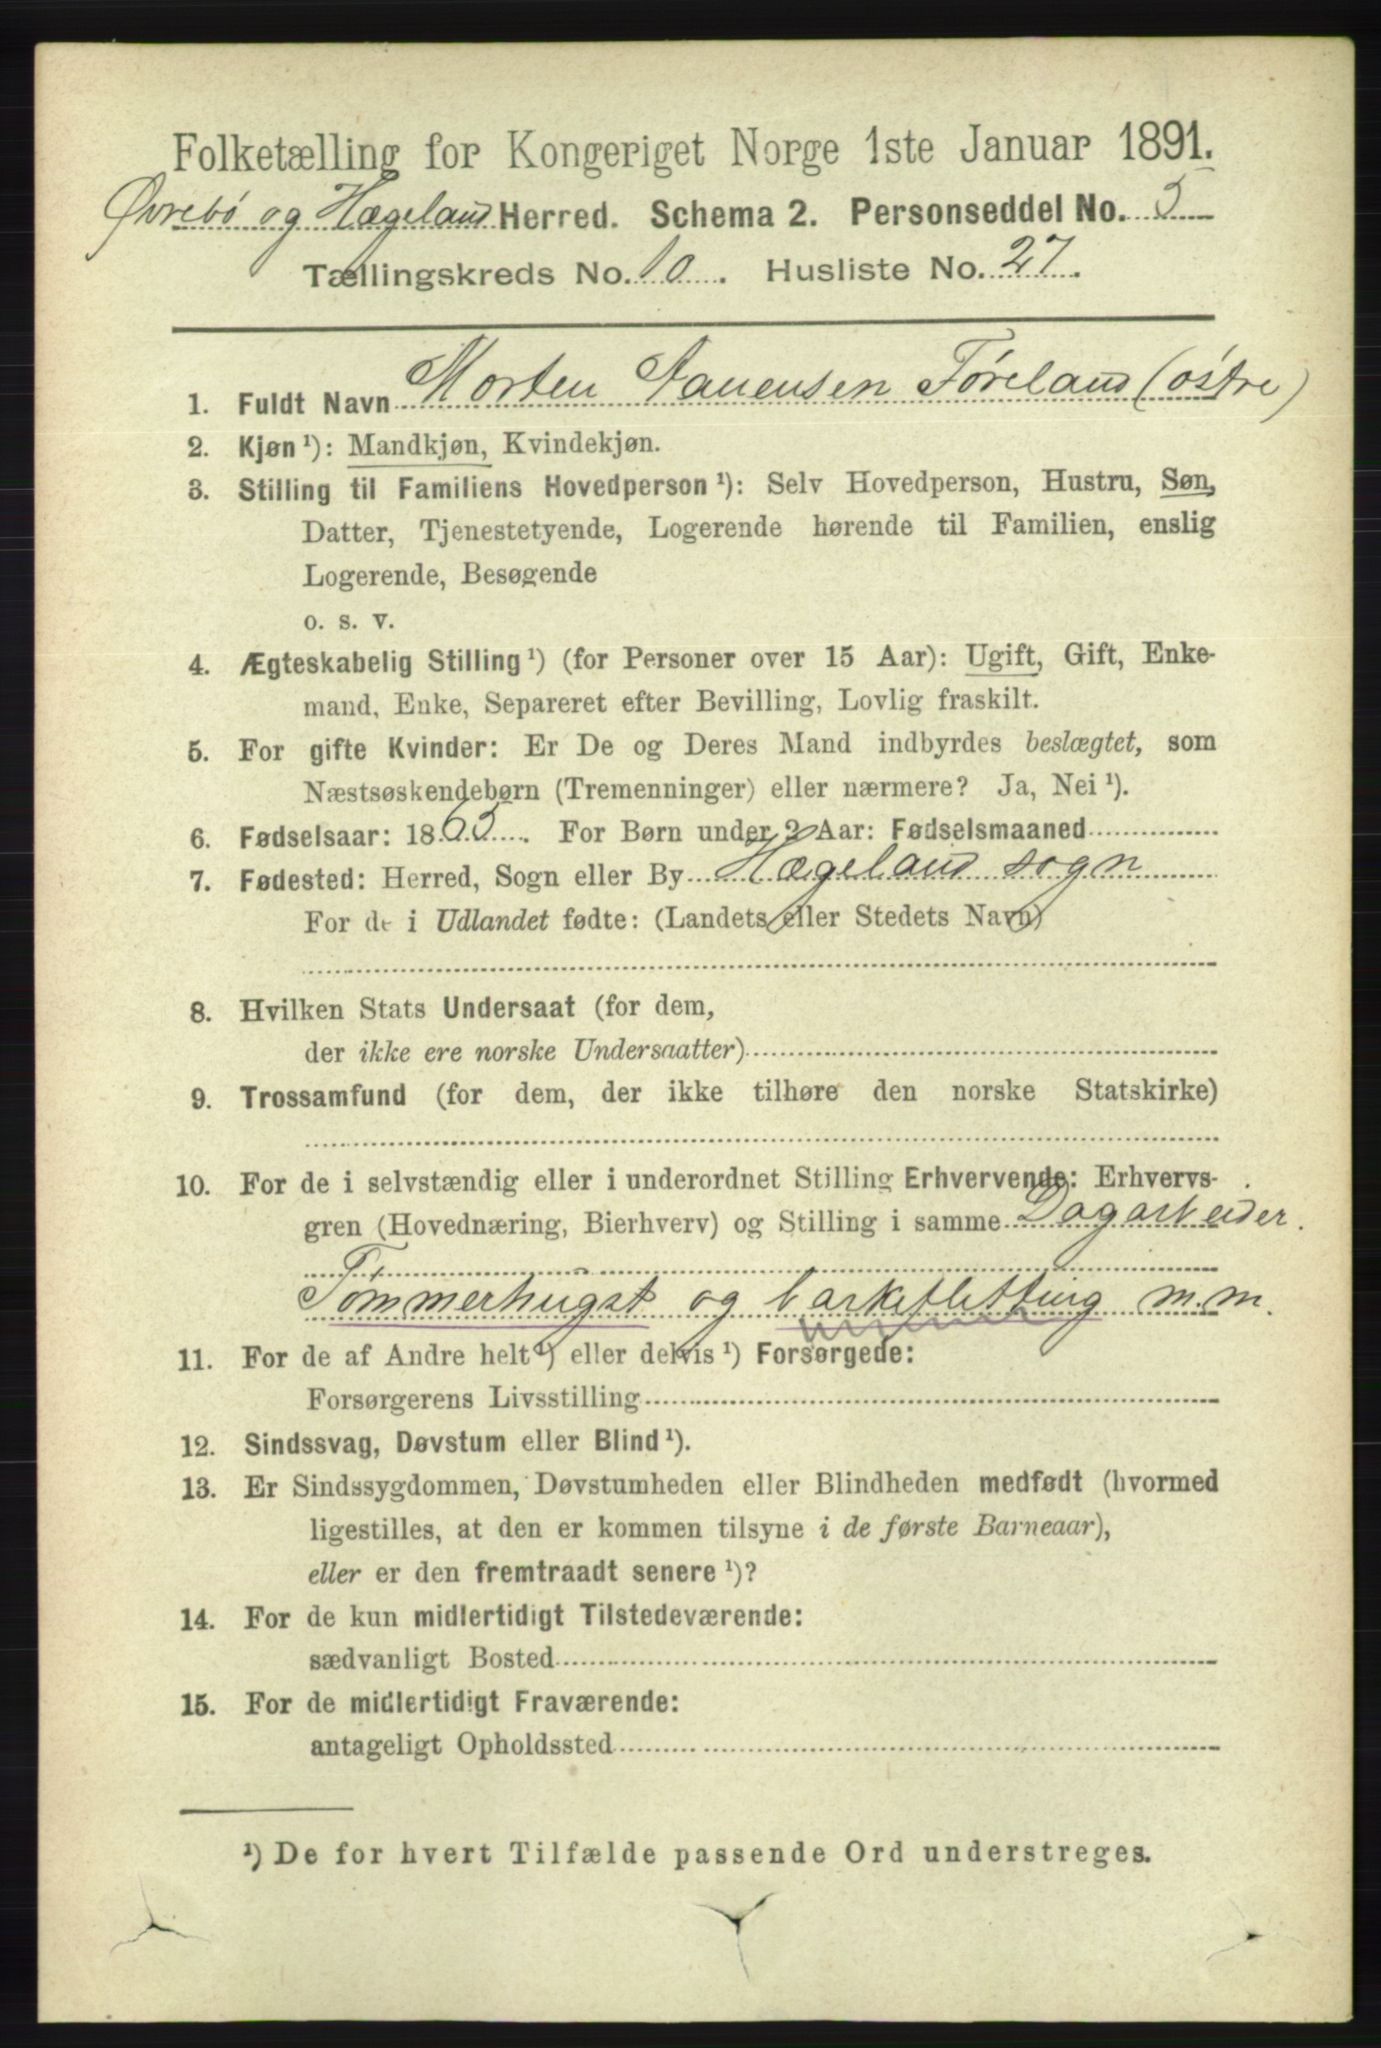 Folketælling for Kongeriget Norge 1ste Januar 1891.
Øvrebö og Hægeland Herred. Schema 2. Personseddel No. 5
Tællingskreds No. 10. Husliste No. 27.
1. Fuldt Navn Morten Aanensen Føreland (østre)
2. Kjøn ¹): Mandkjøn, Kvindekjøn.
3. Stilling til Familiens Hovedperson ¹): Selv Hovedperson, Hustru, Søn,
Datter, Tjenestetyende, Logerende hørende til Familien, enslig
Logerende, Besøgende
o. s. v.
4. Ægteskabelig Stilling ¹) (for Personer over 15 Aar): Ugift, Gift, Enke-
mand, Enke, Separeret efter Bevilling, Lovlig fraskilt.
5. For gifte Kvinder: Er De og Deres Mand indbyrdes beslægtet, som
Næstsøskendebørn (Tremenninger) eller nærmere? Ja, Nei ¹).
6. Fødselsaar: 1865. For Børn under 2 Aar: Fødselsmaaned
7. Fødested: Herred, Sogn eller By Hægeland sogn
For de i Udlandet fødte: (Landets eller Stedets Navn)
8. Hvilken Stats Undersaat (for dem,
der ikke ere norske Undersaatter)
9. Trossamfund (for dem, der ikke tilhøre den norske Statskirke)
10. For de i selvstændig eller i underordnet Stilling Erhvervende: Erhvervs-
gren (Hovednæring, Bierhverv) og Stilling i samme Dagarbeider.
Tømmerhugst og barkefletting m.m.
11. For de af Andre helt ¹) eller delvis ¹) Forsørgede:
Forsørgerens Livsstilling
12. Sindssvag, Døvstum eller Blind ¹).
13. Er Sindssygdommen, Døvstumheden eller Blindheden medfødt (hvormed
ligestilles, at den er kommen tilsyne i de første Barneaar),
eller er den fremtraadt senere ¹)?
14. For de kun midlertidigt Tilstedeværende:
sædvanligt Bosted
15. For de midlertidigt Fraværende:
antageligt Opholdssted
¹) De for hvert Tilfælde passende Ord understreges.